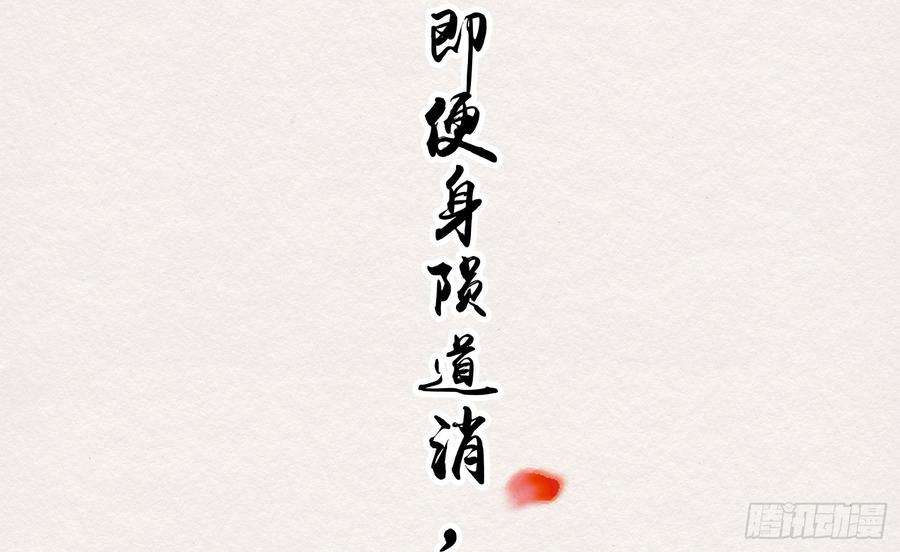 即便身陨道消，
腾讯动漫